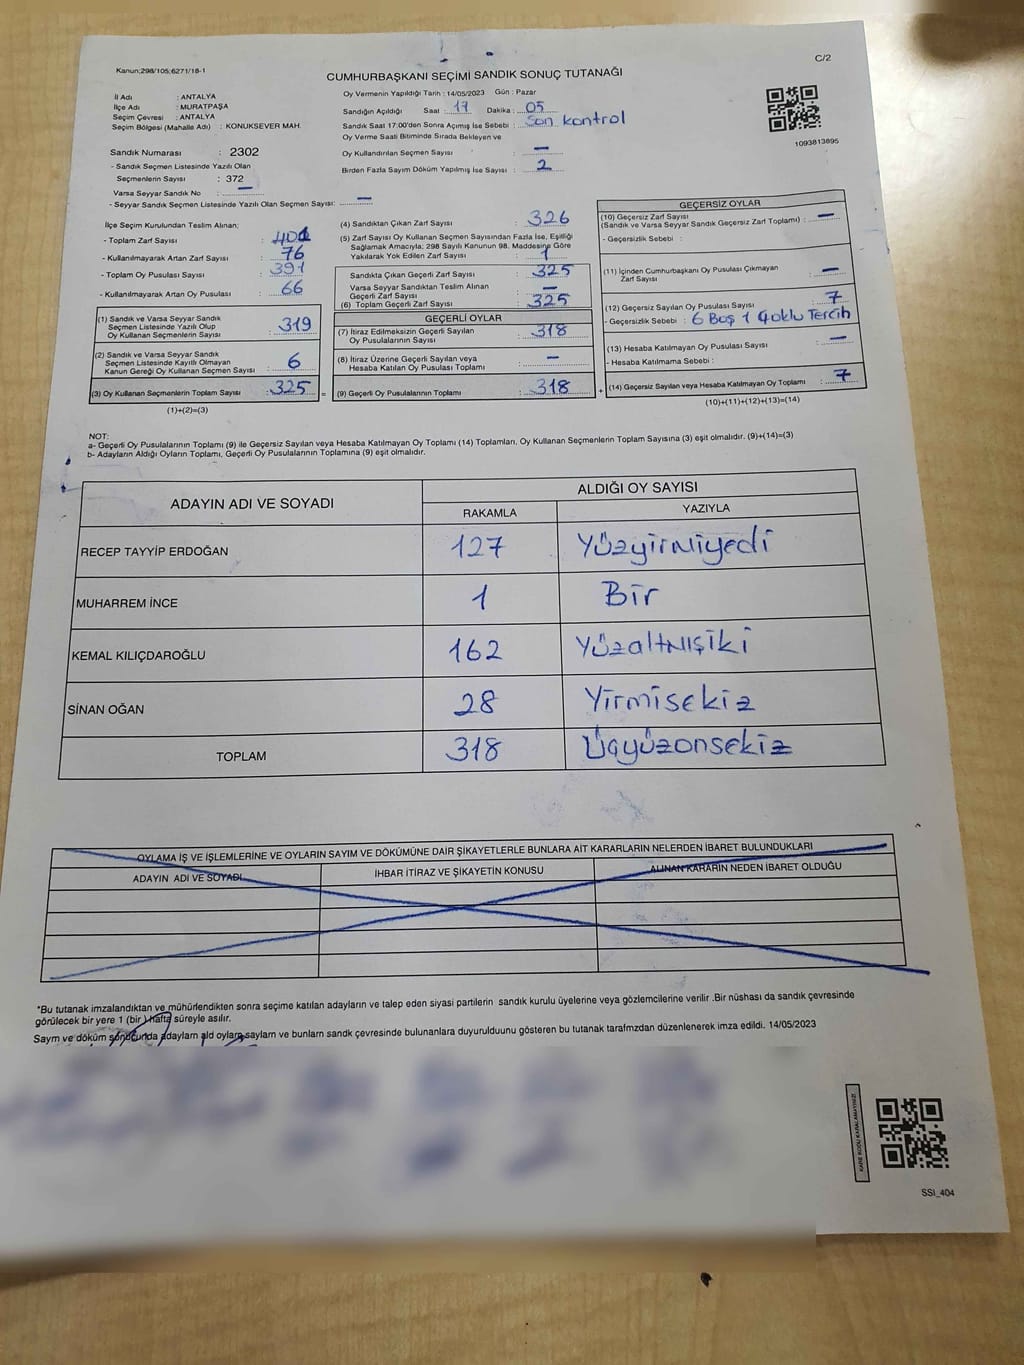 Kanun;298/105;6271/18-1
C/2
CUMHURBAŞKANI SEÇİMİ SANDIK SONUÇ TUTANAĞI
İl Adı : ANTALYA
İlçe Adı : MURATPAŞA
Seçim Çevresi : ANTALYA
Seçim Bölgesi (Mahalle Adı) : KONUKSEVER MAH.
Sandık Numarası : 2302
- Sandık Seçmen Listesinde Yazılı Olan
Seçmenlerin Sayısı : 372
Varsa Seyyar Sandık No : —
- Seyyar Sandık Seçmen Listesinde Yazılı Olan Seçmen Sayısı: —
Oy Vermenin Yapıldığı Tarih : 14/05/2023 Gün : Pazar
Sandığın Açıldığı Saat : 17 Dakika : 05
Sandık Saat 17:00'den Sonra Açımış İse Sebebi : Son kontrol
Oy Verme Saati Bitiminde Sırada Bekleyen ve
Oy Kullandırılan Seçmen Sayısı : —
Birden Fazla Sayım Döküm Yapılmış İse Sayısı : 2
1093813895
İlçe Seçim Kurulundan Teslim Alınan;
- Toplam Zarf Sayısı : 401
- Kullanılmayarak Artan Zarf Sayısı : 76
- Toplam Oy Pusulası Sayısı : 391
- Kullanılmayarak Artan Oy Pusulası : 66
(1) Sandık ve Varsa Seyyar Sandık
Seçmen Listesinde Yazılı Olup
Oy Kullanan Seçmenlerin Sayısı : 319
(2) Sandık ve Varsa Seyyar Sandık
Seçmen Listesinde Kayıtlı Olmayan
Kanun Gereği Oy Kullanan Seçmen Sayısı : 6
(3) Oy Kullanan Seçmenlerin Toplam Sayısı : 325
(1)+(2)=(3)
=
(4) Sandıktan Çıkan Zarf Sayısı : 326
(5) Zarf Sayısı Oy Kullanan Seçmen Sayısından Fazla İse, Eşitliği
Sağlamak Amacıyla; 298 Sayılı Kanunun 98. Maddesine Göre
Yakılarak Yok Edilen Zarf Sayısı : 1
Sandıkta Çıkan Geçerli Zarf Sayısı : 325
Varsa Seyyar Sandıktan Teslim Alınan
Geçerli Zarf Sayısı : —
(6) Toplam Geçerli Zarf Sayısı : 325
GEÇERLİ OYLAR
(7) İtiraz Edilmeksizin Geçerli Sayılan
Oy Pusulalarının Sayısı : 318
(8) İtiraz Üzerine Geçerli Sayılan veya
Hesaba Katılan Oy Pusulası Toplamı : —
(9) Geçerli Oy Pusulalarının Toplamı : 318
+
GEÇERSİZ OYLAR
(10) Geçersiz Zarf Sayısı
(Sandık ve Varsa Seyyar Sandık Geçersiz Zarf Toplamı) : —
- Geçersizlik Sebebi :
(11) İçinden Cumhurbaşkanı Oy Pusulası Çıkmayan
Zarf Sayısı : —
(12) Geçersiz Sayılan Oy Pusulası Sayısı : 7
- Geçersizlik Sebebi : 6 Boş 1 Çoklu Tercih
(13) Hesaba Katılmayan Oy Pusulası Sayısı : —
- Hesaba Katılmama Sebebi :
(14) Geçersiz Sayılan veya Hesaba Katılmayan Oy Toplamı : 7
(10)+(11)+(12)+(13)=(14)
NOT:
a- Geçerli Oy Pusulalarının Toplamı (9) ile Geçersiz Sayılan veya Hesaba Katılmayan Oy Toplamı (14) Toplamları, Oy Kullanan Seçmenlerin Toplam Sayısına (3) eşit olmalıdır. (9)+(14)=(3)
b- Adayların Aldığı Oyların Toplamı, Geçerli Oy Pusulalarının Toplamına (9) eşit olmalıdır.
ADAYIN ADI VE SOYADI
ALDIĞI OY SAYISI
RAKAMLA YAZIYLA
RECEP TAYYİP ERDOĞAN 127 Yüzyirmiyedi
MUHARREM İNCE 1 Bir
KEMAL KILIÇDAROĞLU 162 Yüzaltmışiki
SİNAN OĞAN 28 Yirmisekiz
TOPLAM 318 Üçyüzonsekiz
OYLAMA İŞ VE İŞLEMLERİNE VE OYLARIN SAYIM VE DÖKÜMÜNE DAİR ŞİKAYETLERLE BUNLARA AİT KARARLARIN NELERDEN İBARET BULUNDUKLARI
ADAYIN ADI VE SOYADI İHBAR İTİRAZ VE ŞİKAYETİN KONUSU ALINAN KARARIN NEDEN İBARET OLDUĞU
*Bu tutanak imzalandıktan ve mühürlendikten sonra seçime katılan adayların ve talep eden siyasi partilerin sandık kurulu üyelerine veya gözlemcilerine verilir .Bir nüshası da sandık çevresinde
görülecek bir yere 1 (bir ) hafta süreyle asılır.
Saym ve döküm sonucunda adaylarn ald oylarn saylarn ve bunlarn sandk çevresinde bulunanlara duyurulduunu gösteren bu tutanak tarafmzdan düzenlenerek imza edildi. 14/05/2023
KARE KODU KARALAMAYINIZ!
SSİ_404